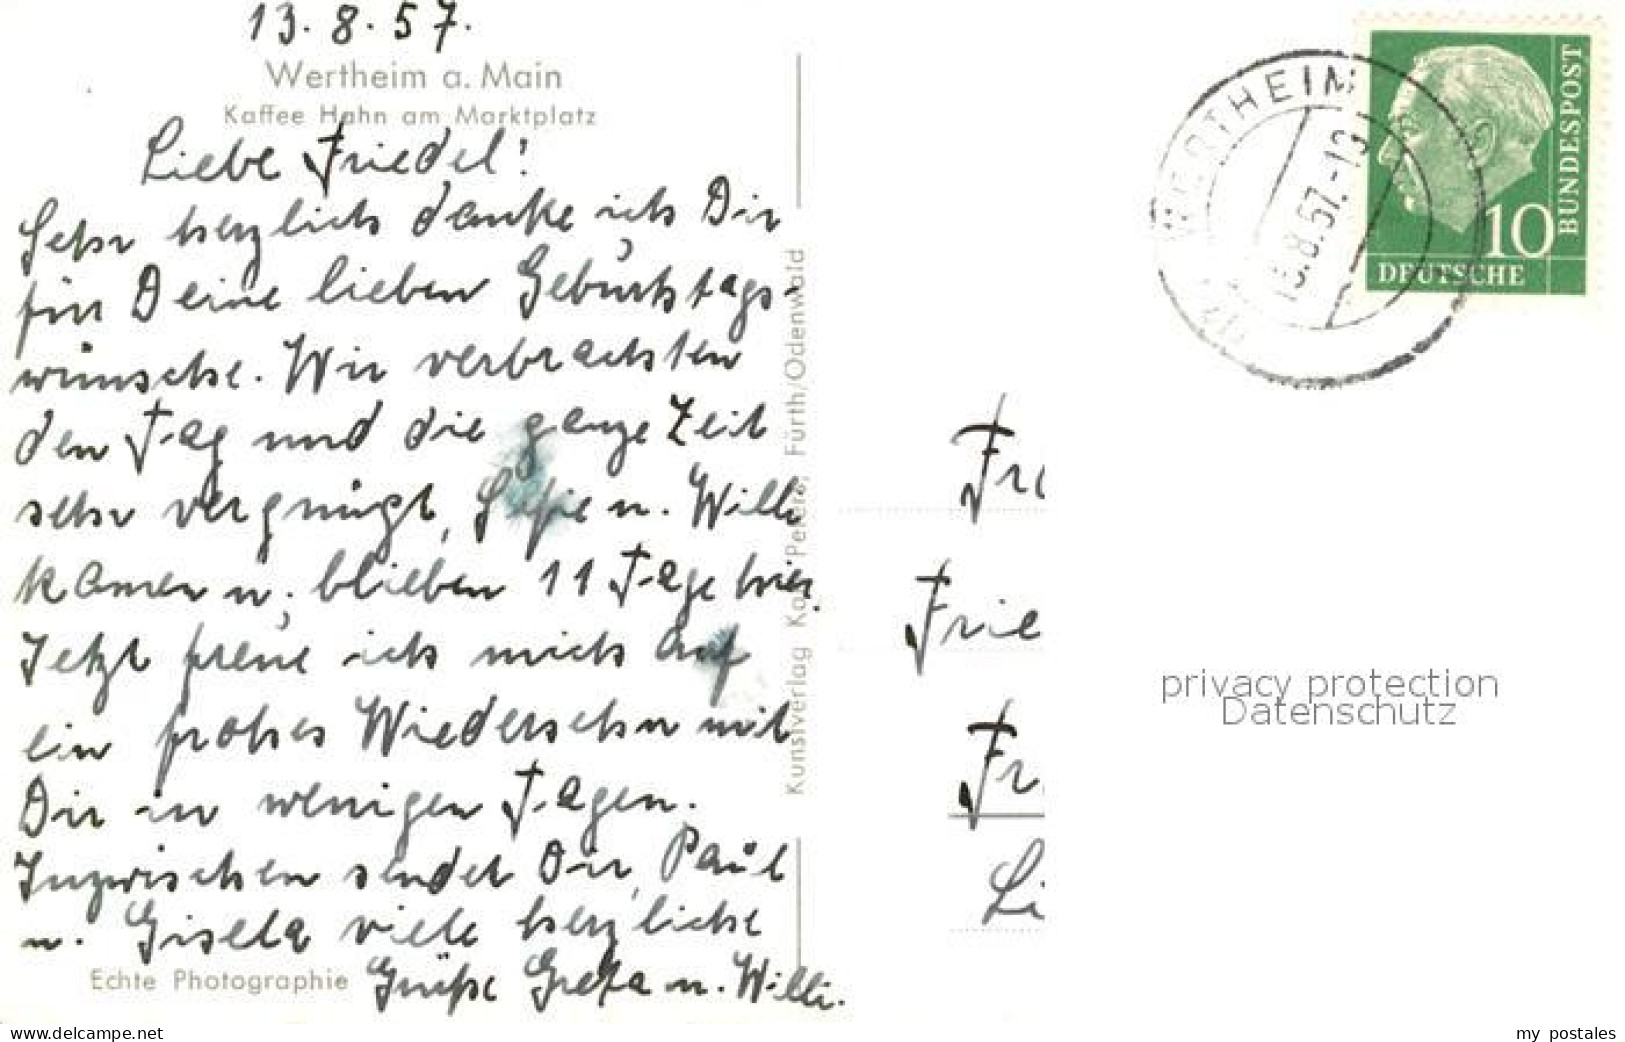 13. 8. 57.
Wertheim a. Main
Kaffee Hahn am Marktplatz
Liebe Friedel!
Sehr herzlich danke ich Dir
für Deine lieben Geburtstags-
wünsche. Wir verbrachten
den Tag und die ganze Zeit
sehr vergnügt, u. Willi
kamen u. blieben 11 Tage hier.
Jetzt freue ich mich auf
ein frohes Wiedersehn mit
Dir in wenigen Tagen.
Inzwischen sendet Dir, Paul
u. Gisela viele herzliche
Grüße Greta u. Willi.
Echte Photographie
Kunstverlag Karl Peters, Fürth/Odenwald
WERTHEIM
8.57.-13
10
DEUTSCHE
BUNDESPOST
Fri
Frie
Fr
Li
privacy protection
Datenschutz
www.delcampe.net
my postales